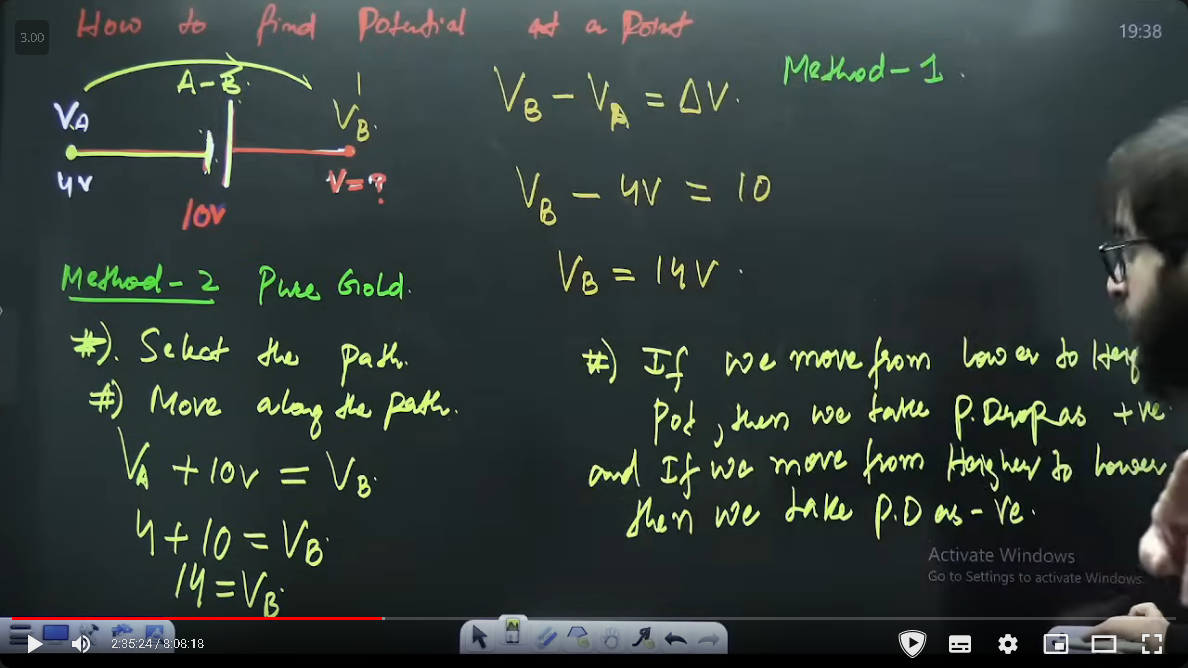 3.00
How to find Potential at a Point
19:38
Method-1.
A-B.
VA
VB.
4V
V=?
10V
VB - VA = ΔV.
VB - 4V = 10
VB = 14V.
Method-2 Pure Gold.
#). Select the path.
#) Move along the path.
VA + 10V = VB.
4+10 = VB.
14 = VB.
#) If we move from lower to Heig
Pot, then we take P.Drop as +ve.
and If we move from Heigher to lower
then we take P.D as -ve.
Activate Windows
Go to Settings to activate Windows.
2:35:24 / 8:08:18